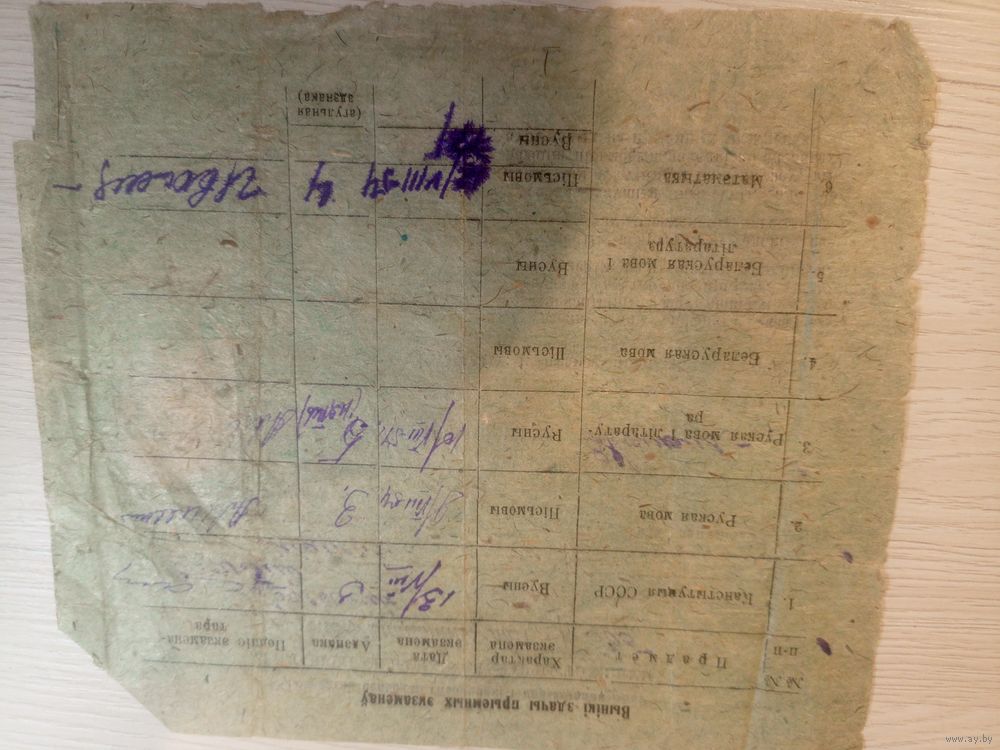 Вынікі здачы прыемных экзаменаў
№№ п-п Прадмет Характар экзамена Дата экзамена Адзнака Подпіс экзамена-тара
1. Канстытуцыя СССР Вусны 13/VIII 3
2. Руская мова Пісьмовы VIII 54 3.
3. Руская мова і літарату-ра Вусны 10/VIII-54 5
4. Беларуская мова Пісьмовы
5. Беларуская мова і літаратура Вусны
6. Матэматыка Пісьмовы /VIII-54 4
Вусны
(агульная адзнака)
www.ay.by